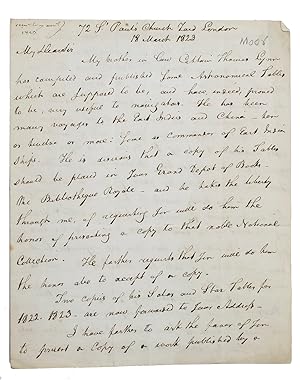 72 St Pauls Church Yard London
18 March 1823
My Dear Sir
My Brother in Law Captain Thomas Lynn
has compiled and published some Astronomical Tables
which are supposed to be, and have indeed, proved
to be, very useful to navigators. He has been
many voyages to the East Indies and China - ten
or twelve or more - some as Commander of East India
Ships. He is desirous that a copy of his Tables
should be placed in your Grand Depot of Books -
the Bibliotheque Royale - and he takes the liberty
through me, of requesting you will do him the
honor of presenting a copy to that noble National
Collection. He farther requests that you will do him
the honor also to accept of a copy.
Two copies of his Solar and Star Tables for
1822. 1823 - are now forwarded to your Address -
I have farther to ask the favor of you
to present a Copy of a work published by a
M006